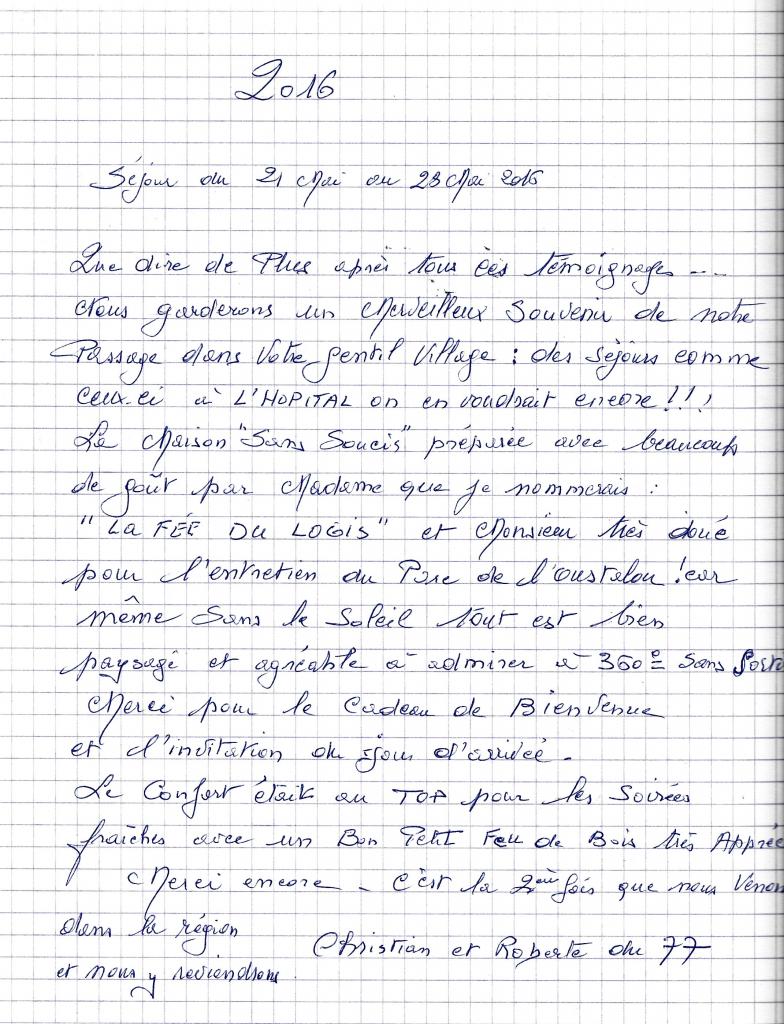 2016
Séjour du 21 Mai au 28 Mai 2016
Que dire de Plus après tous ces témoignages ....
Nous garderons un Merveilleux Souvenir de notre
Passage dans Votre gentil Village : des séjours comme
ceux-ci à L'HOPITAL on en voudrait encore !!!
La Maison "Sans Soucis" préparée avec beaucoup
de goût par Madame que je nommerais :
"LA FÉE DU LOGIS" et Monsieur très doué
pour l'entretien du Parc de l'oustalou ! car
même Sans le Soleil tout est bien
paysagé et agréable à admirer à 360° Sans
Merci pour le Cadeau de Bienvenue
et l'invitation du jour d'arrivée -
Le Confort était au TOP pour les Soirées
fraîches avec un Bon Petit Feu de Bois très Appréc
Merci encore - C'est la 2ème fois que nous Venon
dans la région
et nous y reviendrons.
Christian et Roberte du 77